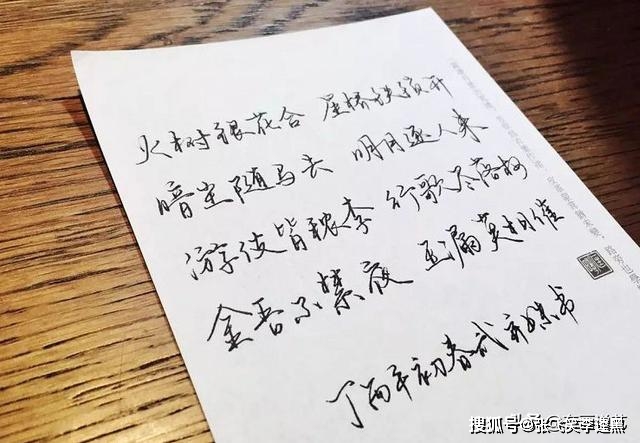 火树银花合 星桥铁锁开
暗尘随马去 明月逐人来
游伎皆秾李 行歌尽落梅
金吾不禁夜 玉漏莫相催
丁酉年初春 书
搜狐号@